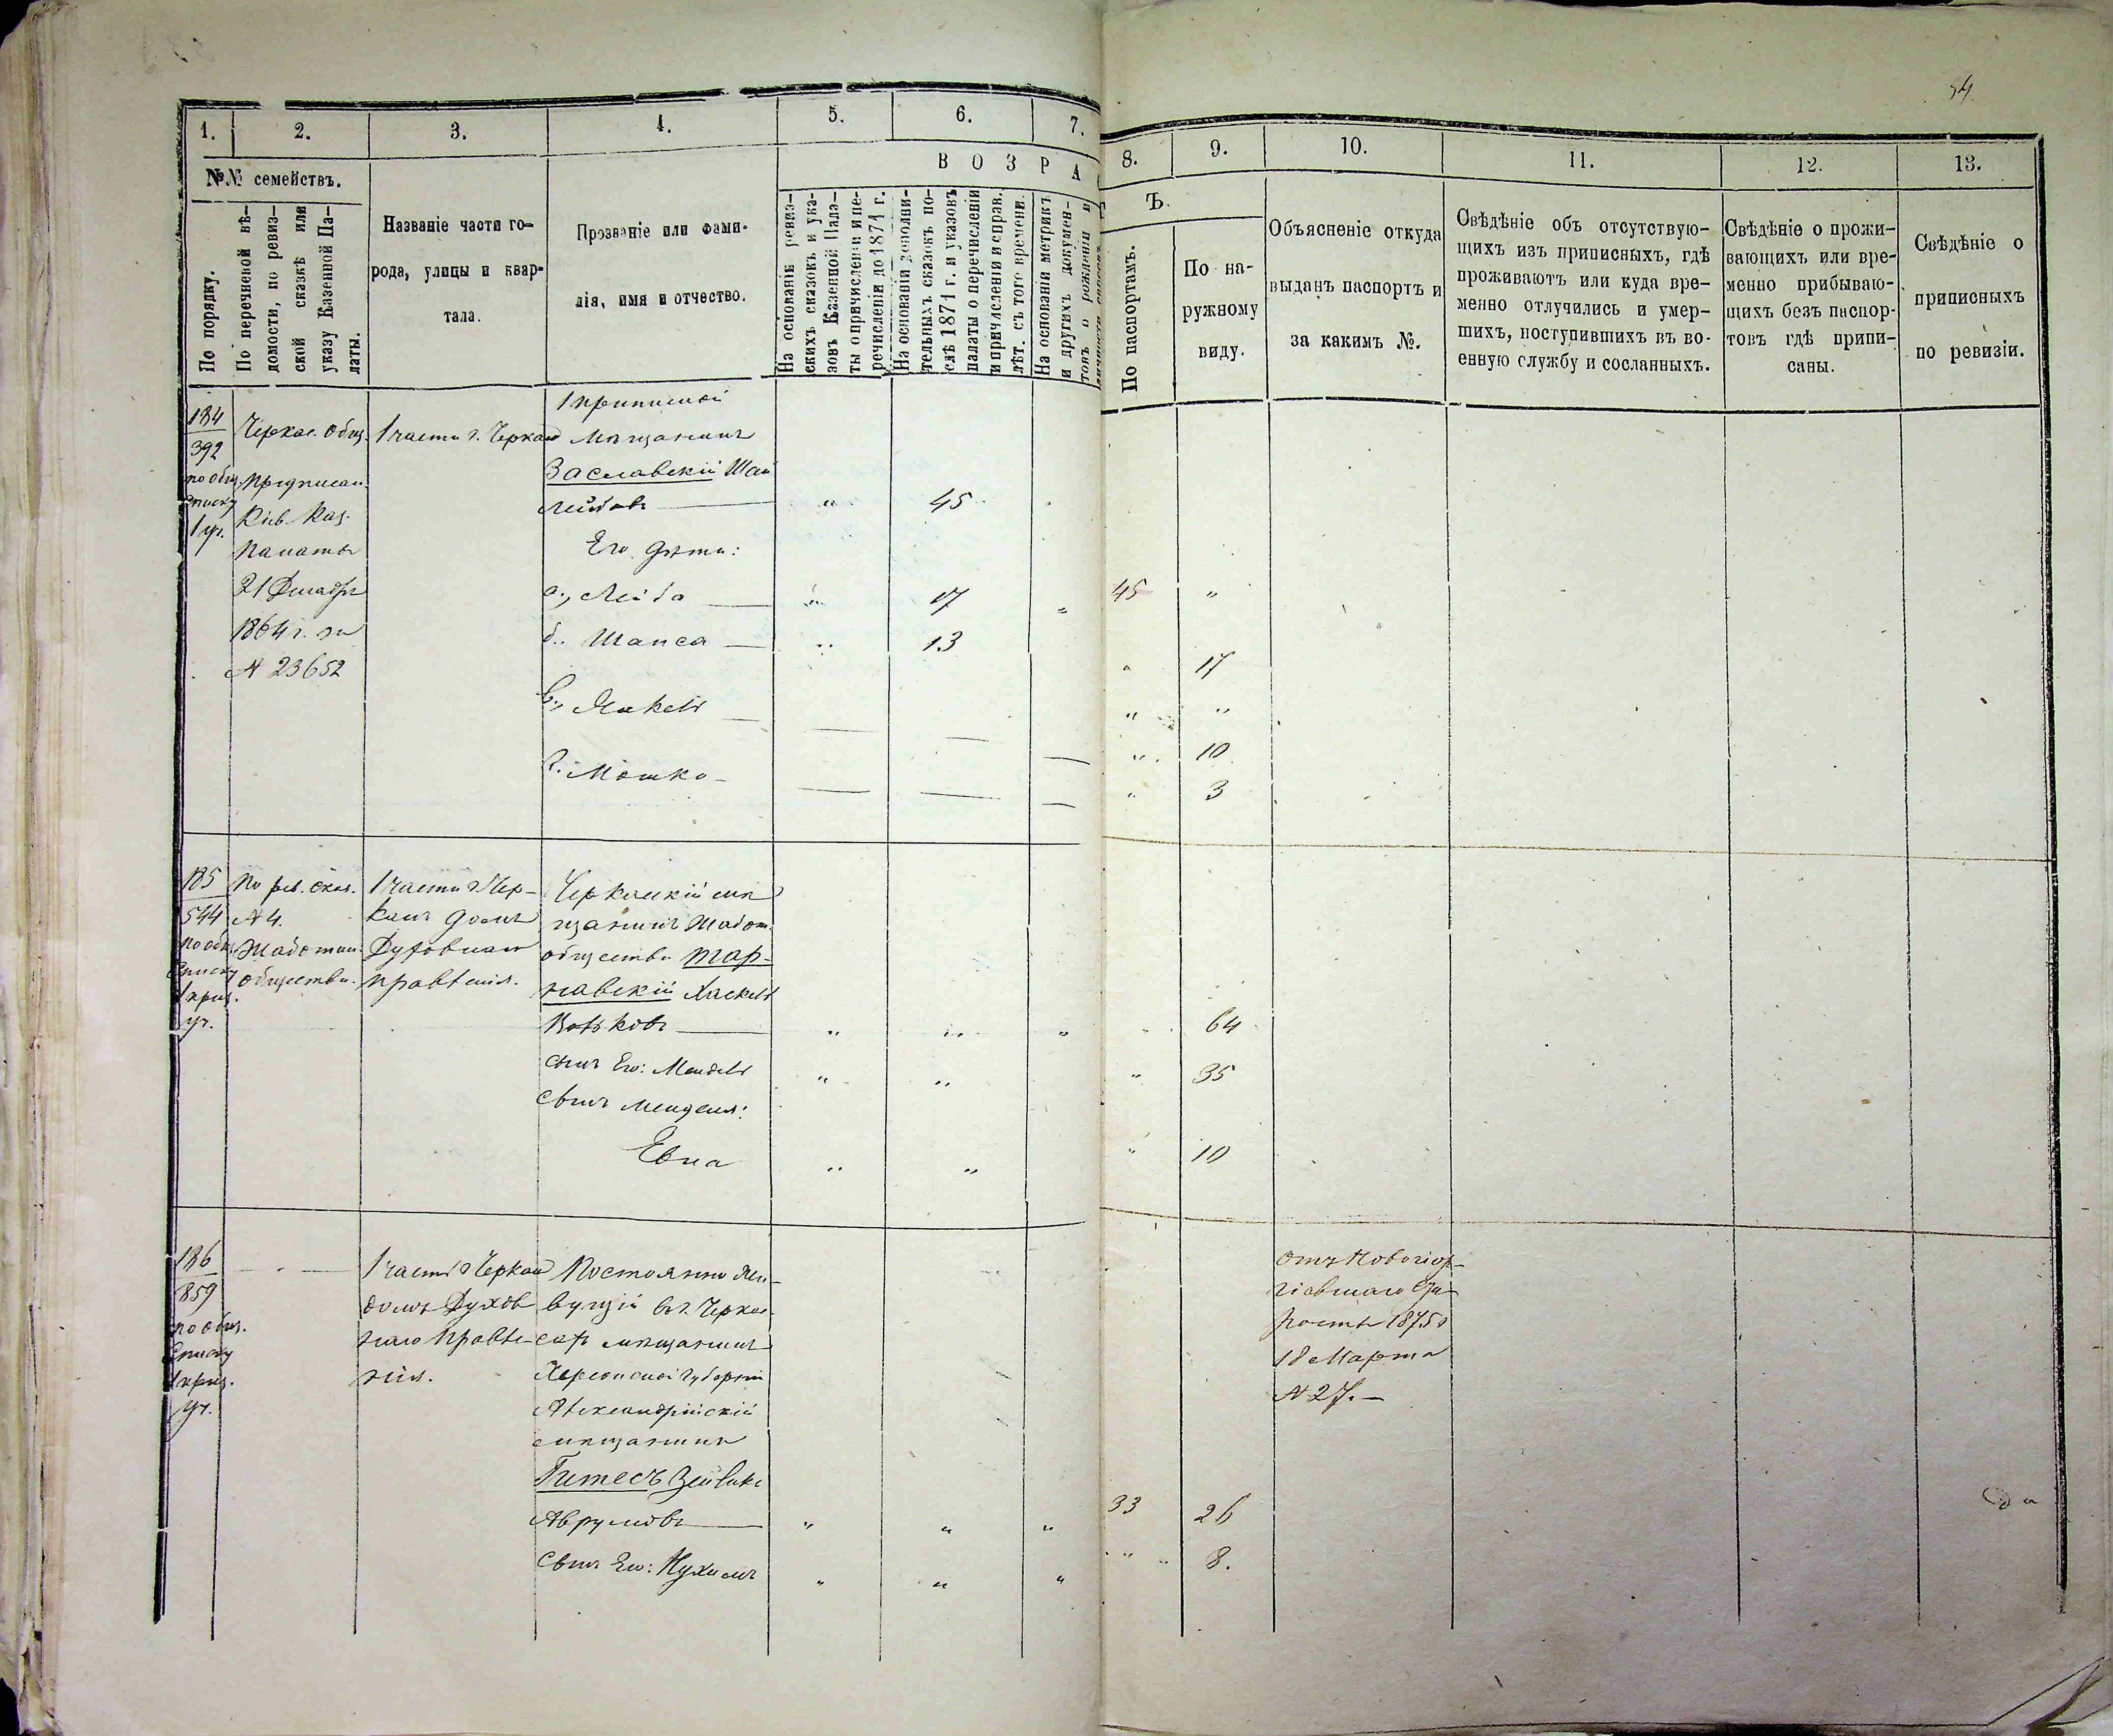 94
1.
2.
3.
4.
5.
6.
7.
8.
9.
10.
11.
12.
13.
№№ семействъ.
По порядку.
По перечневой вѣ-
домости, по ревиз-
ской сказкѣ или
указу Казенной Па-
латы.
Названіе части го-
рода, улицы и квар-
тала.
Прозваніе или Фами-
лія, имя и отчество.
ВОЗРА
На основаніи ревиз-
скихъ сказокъ и ука-
зовъ Казенной Пала-
ты о причисленіи и пе-
речисленіи до 1871 г.
На основаніи дополни-
тельныхъ сказокъ по-
слѣ 1871 г. и указовъ
палаты о перечисленіи
и причисленіи и справ.
лѣт. съ того времени.
На основаніи метрикъ
и другихъ докумен-
товъ о рожденіи и
Ъ.
По паспортамъ.
По на-
ружному
виду.
Объясненіе откуда
выданъ паспортъ и
за какимъ №.
Свѣдѣніе объ отсутствую-
щихъ изъ приписныхъ, гдѣ
проживаютъ или куда вре-
менно отлучились и умер-
шихъ, поступившихъ въ во-
енную службу и сосланныхъ.
Свѣдѣніе о прожи-
вающихъ или вре-
менно прибываю-
щихъ безъ паспор-
товъ гдѣ припи-
саны.
Свѣдѣніе о
приписныхъ
по ревизіи.
184
392
по общ.
списку
1 уч.
Черкас. общ.
предписан.
Кіев. Каз.
Палаты
21 Декабря
1864 г. за
№ 23652
1 части г. Черкас
приписной
мѣщанинъ
Заславскій
Лейбовъ — " 45
Его дѣти:
а., Лейба — " 17 " 45 "
б.. Шапса — " 13 " 17
в., Янкель — — — " "
г. Мошко — — — — " 10
" 3
185
544
по общ.
списку
1 приз.
уч.
По рев. сказ.
№ 4.
Жаботин.
общества.
1 части г. Чер-
касъ домъ
Духовнаго
правленія.
Черкаскій мѣ
щанинъ Жабот.
общества Тар-
навскій Хаскель
Вольковъ — " " " " 64
сынъ Его: Мендель " " " 35
сынъ Менделя:
Евна " " " 10
186
859
по общ.
списку
1 приз.
уч.
1 части г. Черкас
домъ Духов
наго Правле-
нія.
Постоянно жи-
вущій въ г. Черкас-
сахъ мѣщанинъ
Херсонской губерніи
Александрійскій
мѣщанинъ
Гитесъ
Аврумовъ — " " " 33 26
Сынъ Его: Нухимъ " " " " 8.
Отъ Новогеор-
гіевскаго
старосты 1875 г
18 Марта
№ 27.—